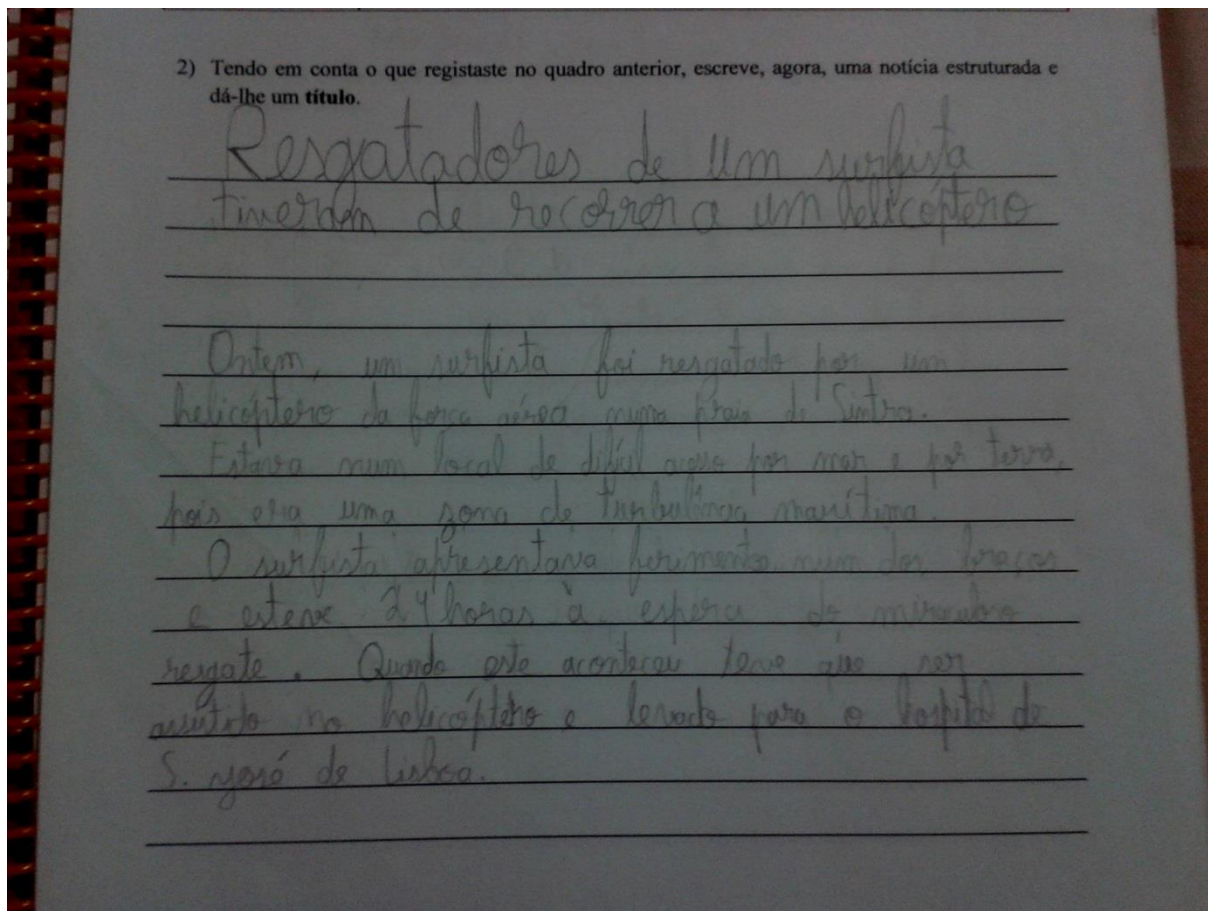 2) Tendo em conta o que registaste no quadro anterior, escreve, agora, uma notícia estruturada e
dá-lhe um título.
Resgatadores de um surfista
tiveram de recorrer a um helicóptero
Ontem, um surfista foi resgatado por um
helicóptero da força aérea numa praia de Sintra.
Estava num local de difícil acesso por mar e por terra,
pois era uma zona de turbulência marítima.
O surfista apresentava ferimentos num dos braços
e esteve 24 horas à espera do
resgate. Quando este aconteceu teve que ser
assistido no helicóptero e levado para o hospital de
S. José de Lisboa.